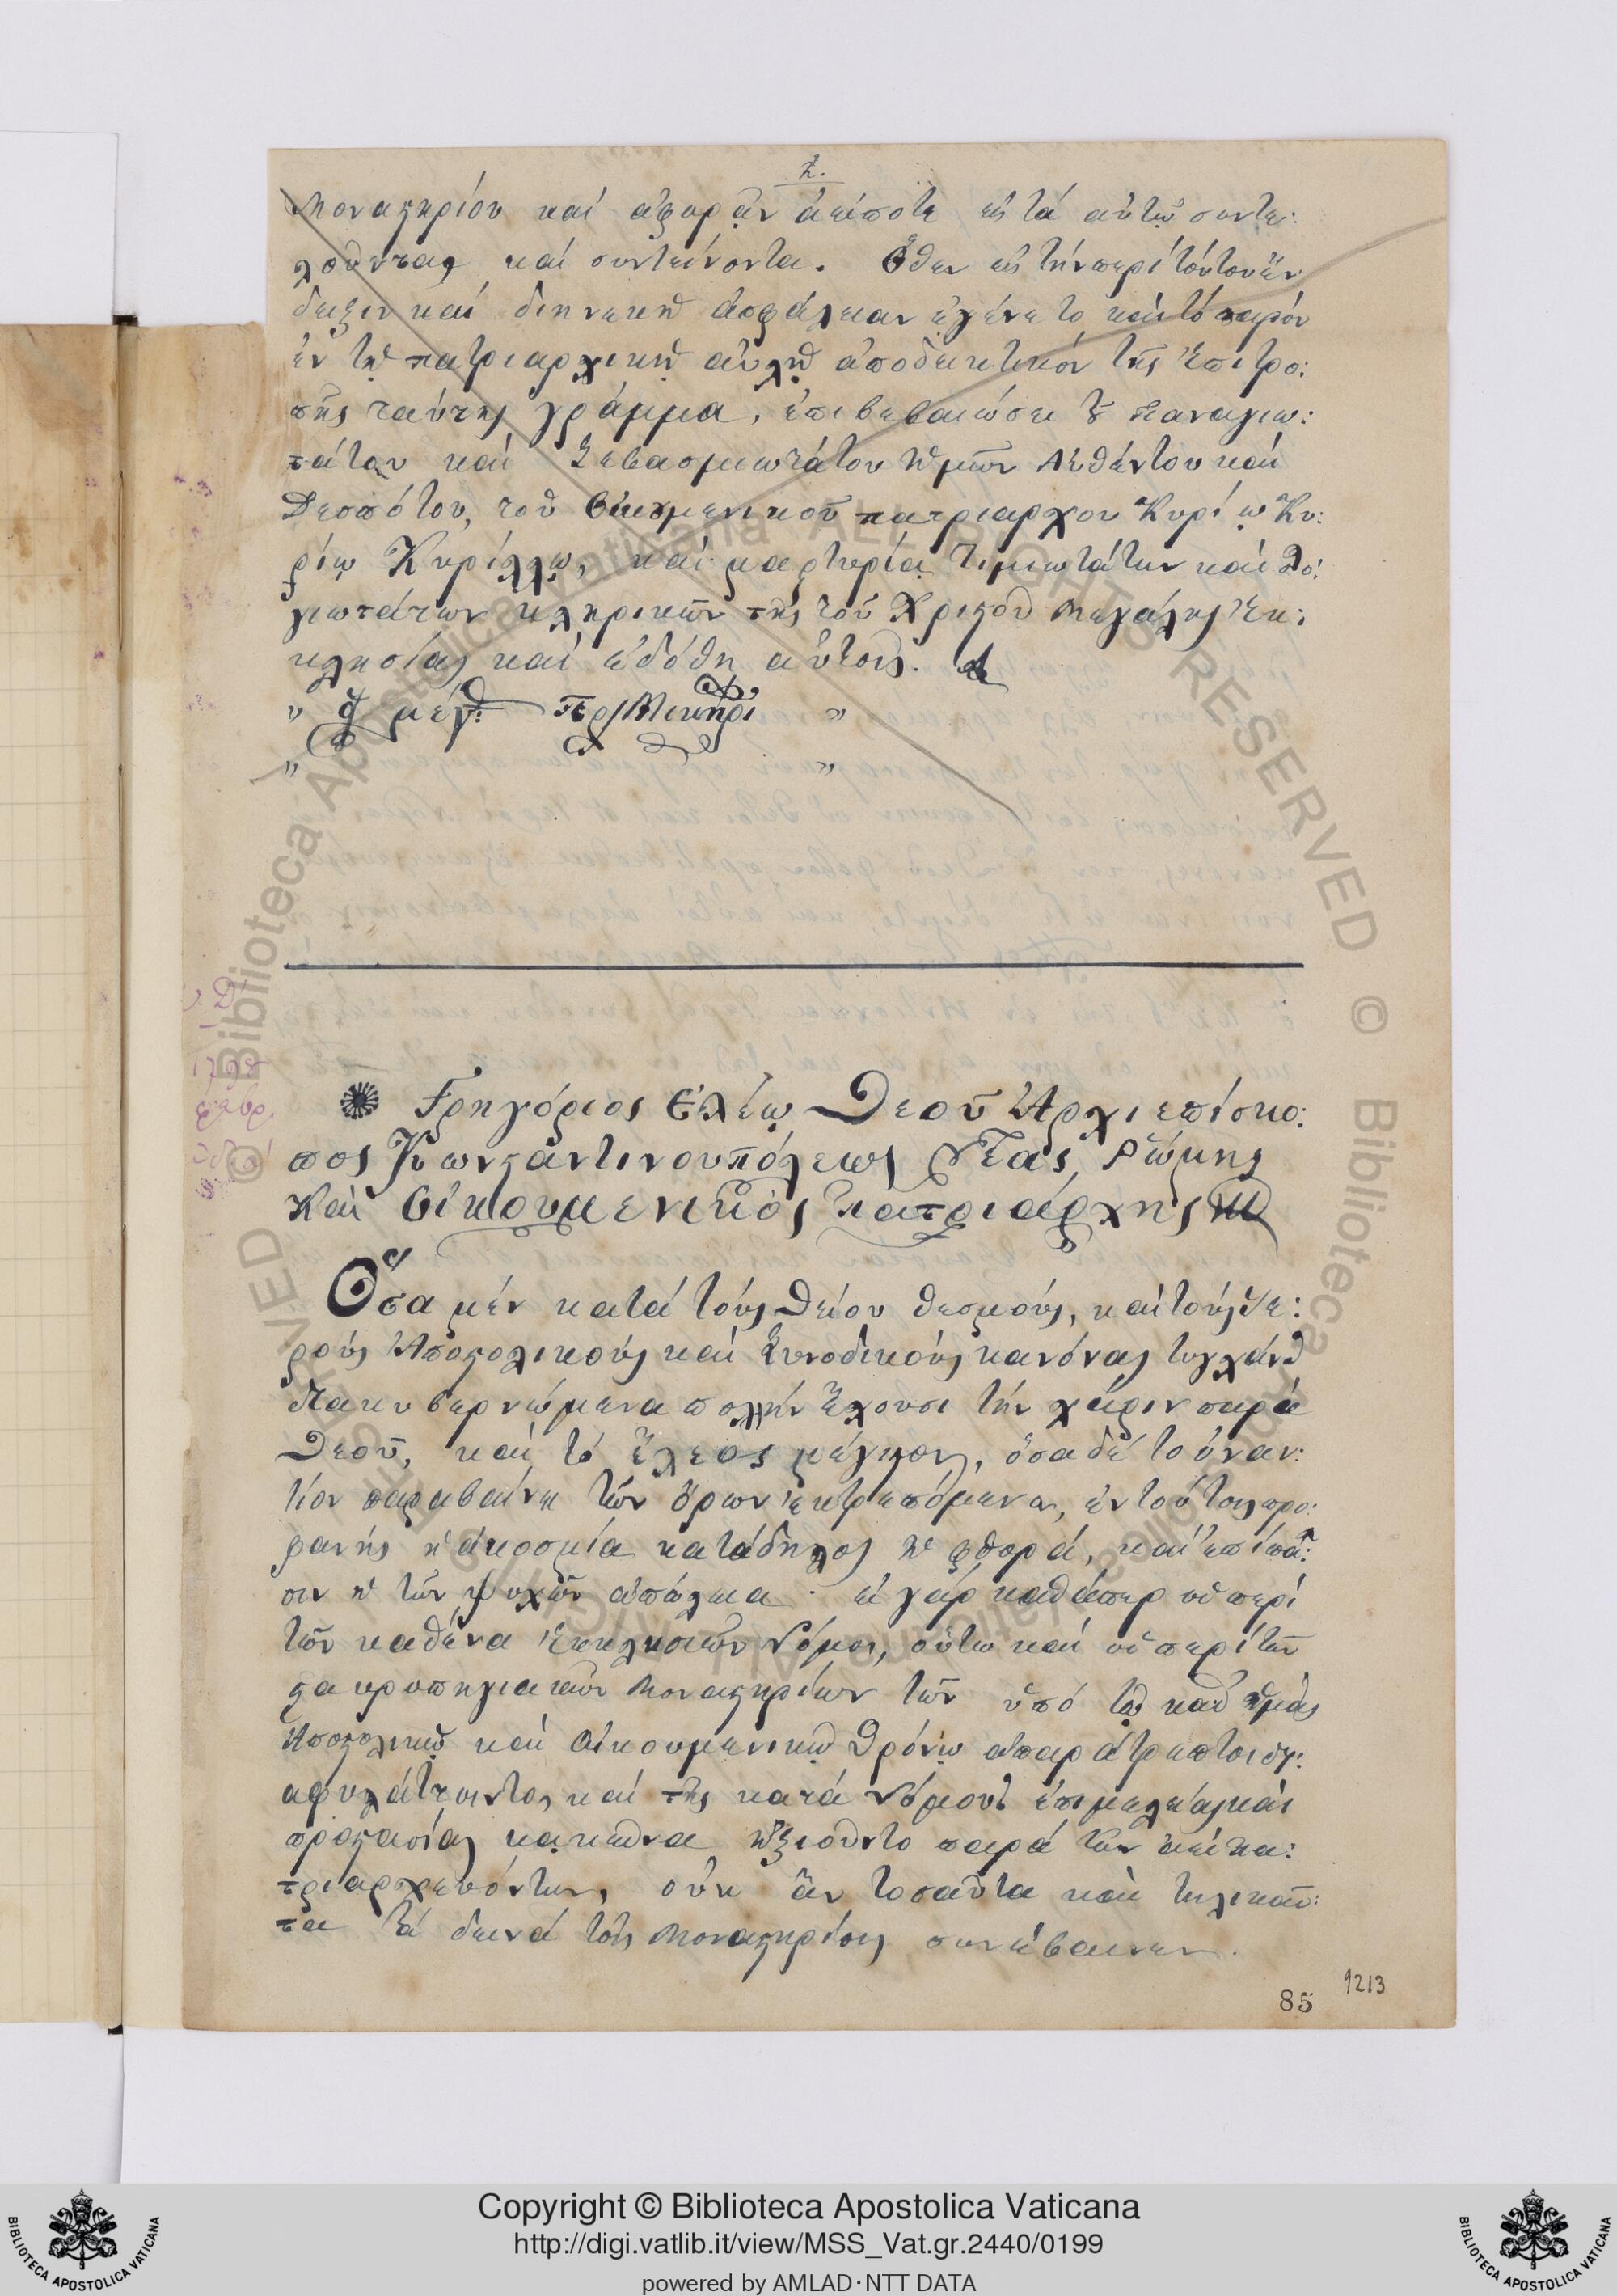 ζ.
Μοναστηρίου καί ἀφορᾶν ἀείποτε εἰς τά αὐτῷ συντε:
λοῦντας καί συντείνοντα. Ὅθεν εἰς τήν περί τούτου ἔν
δειξιν καί διηνεκῆ ἀσφάλειαν ἐγένετο καί τό παρόν
ἐν τῇ πατριαρχικῇ αὐλῇ ἀποδεικτικόν τῆς Ἐπιτρο:
πῆς ταύτης γράμμα, ἐπιβεβαιώσει τοῦ Παναγιω:
τάτου καί Σεβασμιωτάτου ἡμῶν Αὐθέντου καί
Δεσπότου, τοῦ Οἰκουμενικοῦ πατριάρχου Κυρίῳ Κυ:
ρίῳ Κυρίλλῳ, καί μαρτυρίᾳ τιμιωτάτων καί Λο:
γιωτάτων κληρικῶν τῆς τοῦ Χριστοῦ Μεγάλης Ἐκ:
κλησίας καί ἐδόθη αὐτοῖς.
Γρηγόριος Ἐλέῳ Θεοῦ Ἀρχιεπίσκο:
πος Κωνσταντινουπόλεως Νέας Ῥώμης
Καί Οἰκουμενικός Πατριάρχης
Ὅσα μέν κατά τούς Θείου θεσμούς, καί τούς Ἱε:
ρούς Ἀποστολικούς καί Συνοδικούς κανόνας τυγχάνει
διακυβερνώμενα πολλήν ἔχουσι τήν χάριν παρά
Θεοῦ, καί τό ἔλεος μέγιστον, ὅσα δέ τοὐναν:
τίον παραβαίνει τῶν ὅρων ἐκτρεπόμενα, ἐν τούτοις προ:
φανής ἡ ἀκοσμία κατάδηλος ἡ φθορά, καί ἐπί πᾶ:
σιν ἡ τῶν ψυχῶν ἀπώλεια· εἰ γάρ καθάπερ οἱ περί
τῶν καθ᾽ ἕνα Ἐκκλησιῶν Νόμοι, οὕτω καί οἱ περί τῶν
σταυροπηγιακῶν Μοναστηρίων τῶν ὑπό τῷ καθ᾽ ἡμᾶς
Ἀποστολικῷ καί Οἰκουμενικῷ Θρόνῳ ἀπαράτρεπτοι δι:
αφυλάττοιντο, καί τῆς κατά Νόμους ἐπιμελείας καί
προστασίας κἀκεῖνα ἠξιοῦντο παρά τῶν ἀεί πα:
τριαρχευόντων, οὐκ ἄν τοσαῦτα καί τηλικαῦ:
τα τά δεινά τοῖς Μοναστηρίοις συνέβαινεν.
85 1213
Copyright © Biblioteca Apostolica Vaticana
http://digi.vatlib.it/view/MSS_Vat.gr.2440/0199
powered by AMLAD·NTT DATA
BIBLIOTECA APOSTOLICA VATICANA
BIBLIOTECA APOSTOLICA VATICANA